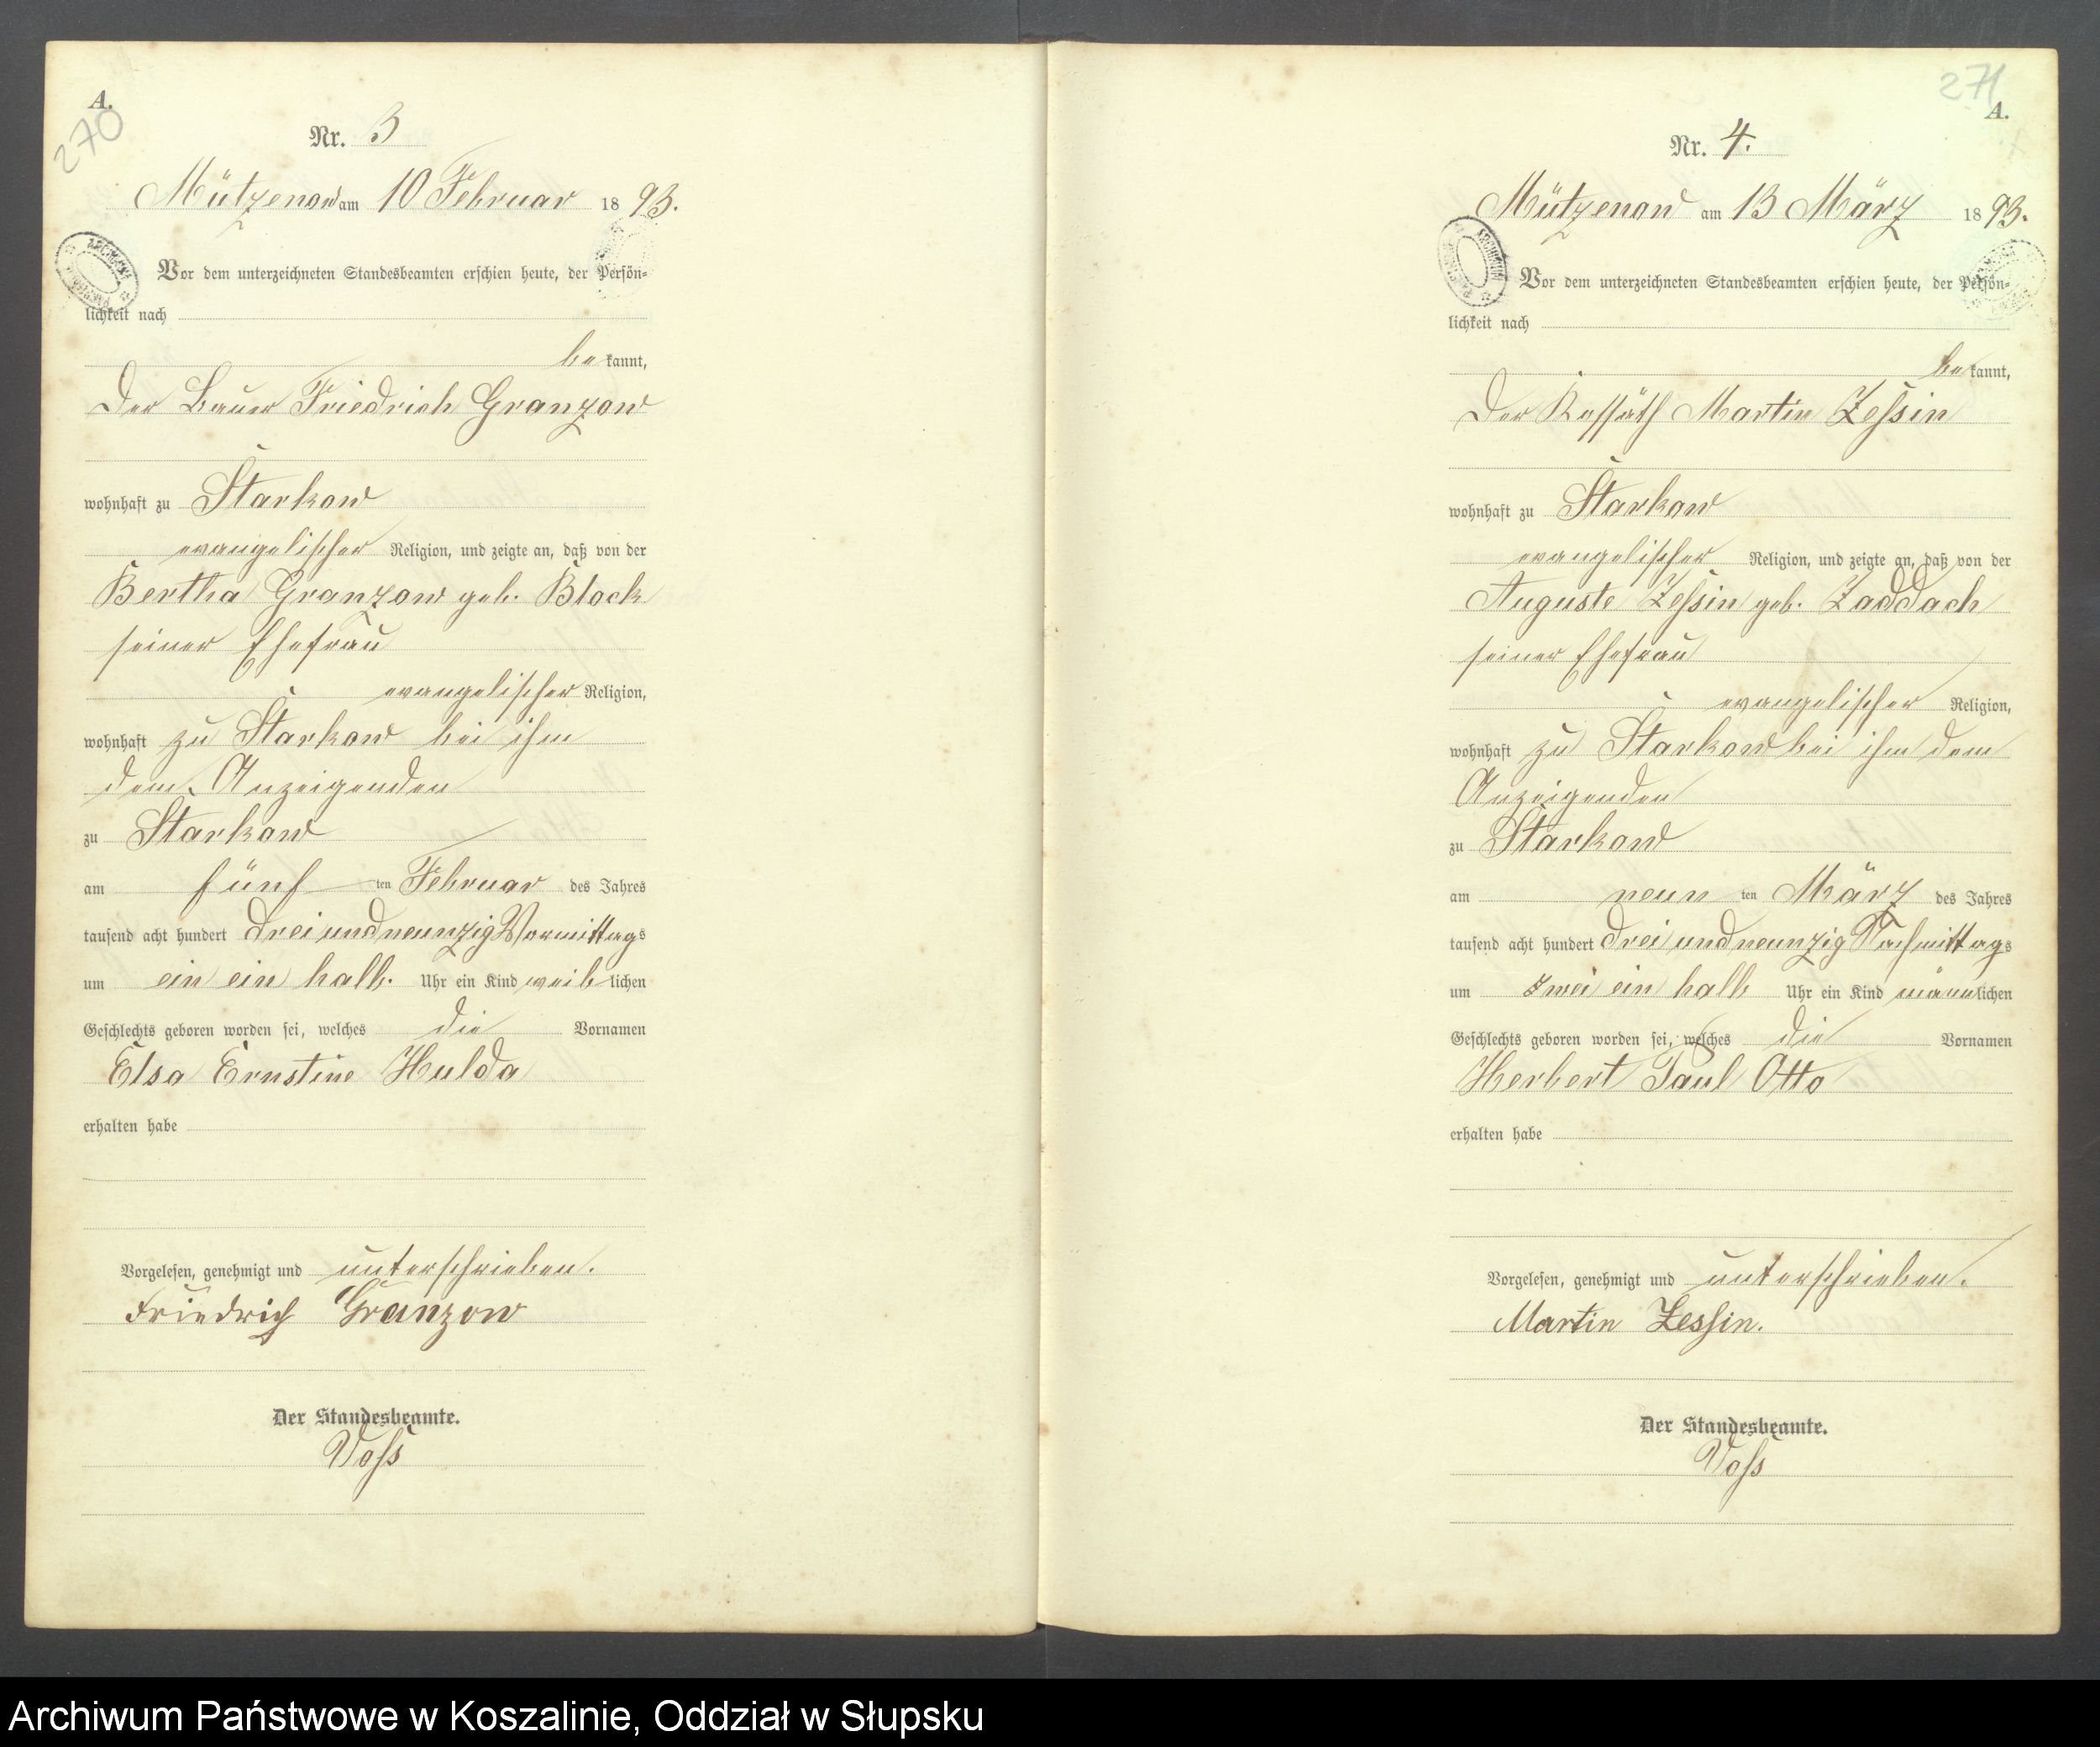 A.
270
Nr. 3
Mützenow am 10 Februar 1893.
Vor dem unterzeichneten Standesbeamten erschien heute, der Persön-
lichkeit nach
bekannt,
Der Bauer Friedrich Granzow
wohnhaft zu Starkow
evangelischer Religion, und zeigte an, daß von der
Bertha Granzow geb. Block
seiner Ehefrau
evangelischer Religion,
wohnhaft zu Starkow bei ihm
dem Anzeigenden
zu Starkow
am fünften Februar des Jahres
tausend acht hundert drei und neunzig Vormittags
um ein ein halb. Uhr ein Kind weiblichen
Geschlechts geboren worden sei, welches die Vornamen
Elsa Ernstine Hulda
erhalten habe
Vorgelesen, genehmigt und unterschrieben.
Friedrich Granzow
Der Standesbeamte.
Voss
271
A.
Nr. 4.
Mützenow am 13 März 1893.
Vor dem unterzeichneten Standesbeamten erschien heute, der Persön-
lichkeit nach
bekannt,
Der Kossäth Martin Zessin
wohnhaft zu Starkow
evangelischer Religion, und zeigte an, daß von der
Auguste Zessin geb. Zaddach
seiner Ehefrau
evangelischer Religion,
wohnhaft zu Starkow bei ihm dem
Anzeigenden
zu Starkow
am neunten März des Jahres
tausend acht hundert drei und neunzig Nachmittags
um zwei ein halb Uhr ein Kind männlichen
Geschlechts geboren worden sei, welches die Vornamen
Herbert Paul Otto
erhalten habe
Vorgelesen, genehmigt und unterschrieben.
Martin Zessin.
Der Standesbeamte.
Voss
Archiwum Państwowe w Koszalinie, Oddział w Słupsku